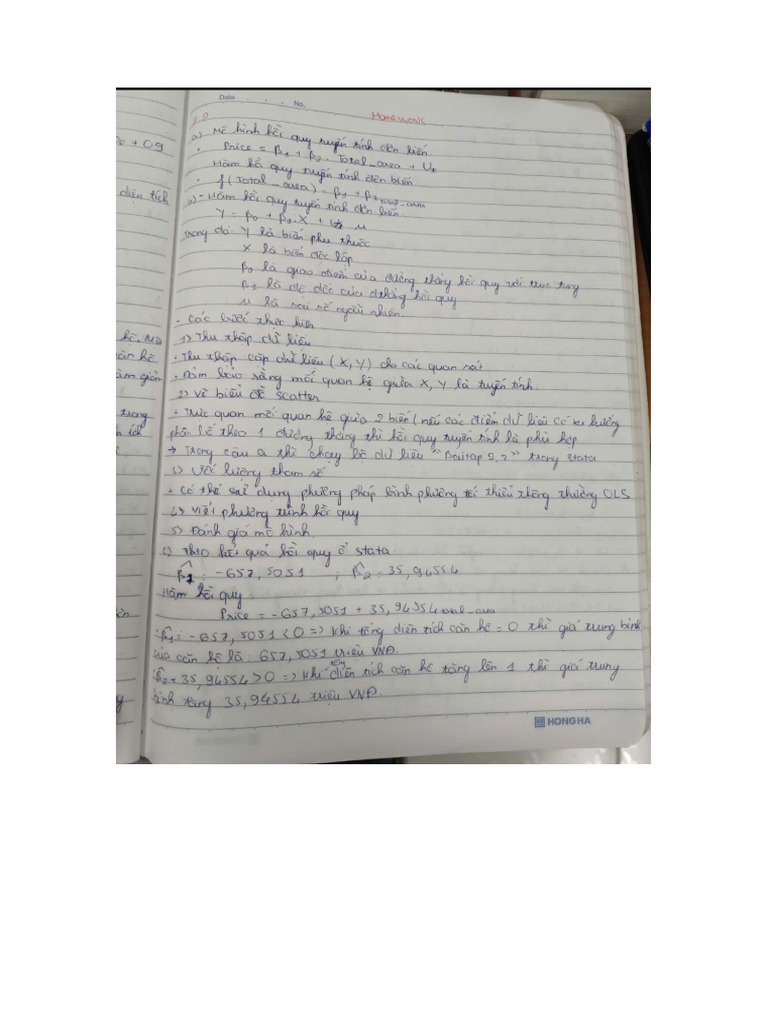 Date . . No.
HOMEWORK
2.2
a) Mô hình hồi quy tuyến tính đơn biến
Price = β1 + β2. Total_area + Ui
Hàm hồi quy tuyến tính đơn biến
f(Total_area) = β1 + β2 total_area
b) - Hàm hồi quy tuyến tính đơn biến
Y = β0 + β1.X + u
Trong đó: Y là biến phụ thuộc
X là biến độc lập
β0 là giao điểm của đường thẳng hồi quy với trục tung
β1 là độ dốc của đthẳng hồi quy
u là sai số ngẫu nhiên
- Các bước thực hiện
1) Thu thập dữ liệu
+ Thu thập cặp dữ liệu (X, Y) cho các quan sát
+ Đảm bảo rằng mối quan hệ giữa X, Y là tuyến tính.
2) Vẽ biểu đồ scatter
+ Trực quan mối quan hệ giữa 2 biến (nếu các điểm dữ liệu có xu hướng
phân bố theo 1 đường thẳng thì hồi quy tuyến tính là phù hợp
→ Trong câu a thì chạy bộ dữ liệu "Baitap 2.2" trong stata
3) Ước lượng tham số
+ Có thể sử dụng phương pháp bình phương tối thiểu thông thường OLS
4) Viết phương trình hồi quy
5) Đánh giá mô hình
c) Theo kết quả hồi quy ở stata
β̂1 = -657,5051 ; β̂2 = 35,94554
Hàm hồi quy
Price = -657,5051 + 35,94554 total_area
β̂1 = -657,5051 < 0 => Khi tổng diện tích căn hộ = 0 thì giá trung bình
của căn hộ là: 657,5051 triệu VNĐ.
β̂2 = 35,94554 > 0 => Khi tổng diện tích căn hộ tăng lên 1 thì giá trung
bình tăng 35,94554 triệu VNĐ.
HONG HA
+ 0g
diện tích
hộ.
căn hộ
giảm
trong
ích